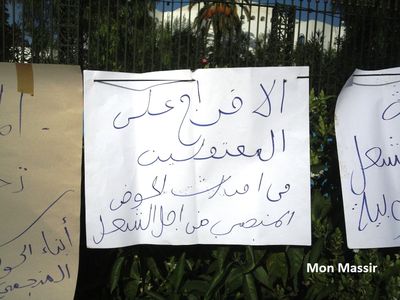 الافراج على
المعتقلين
في احداث الحوض
المنجمي من اجل الشغل
أبناء الحو
المنجمي
Mon Massir